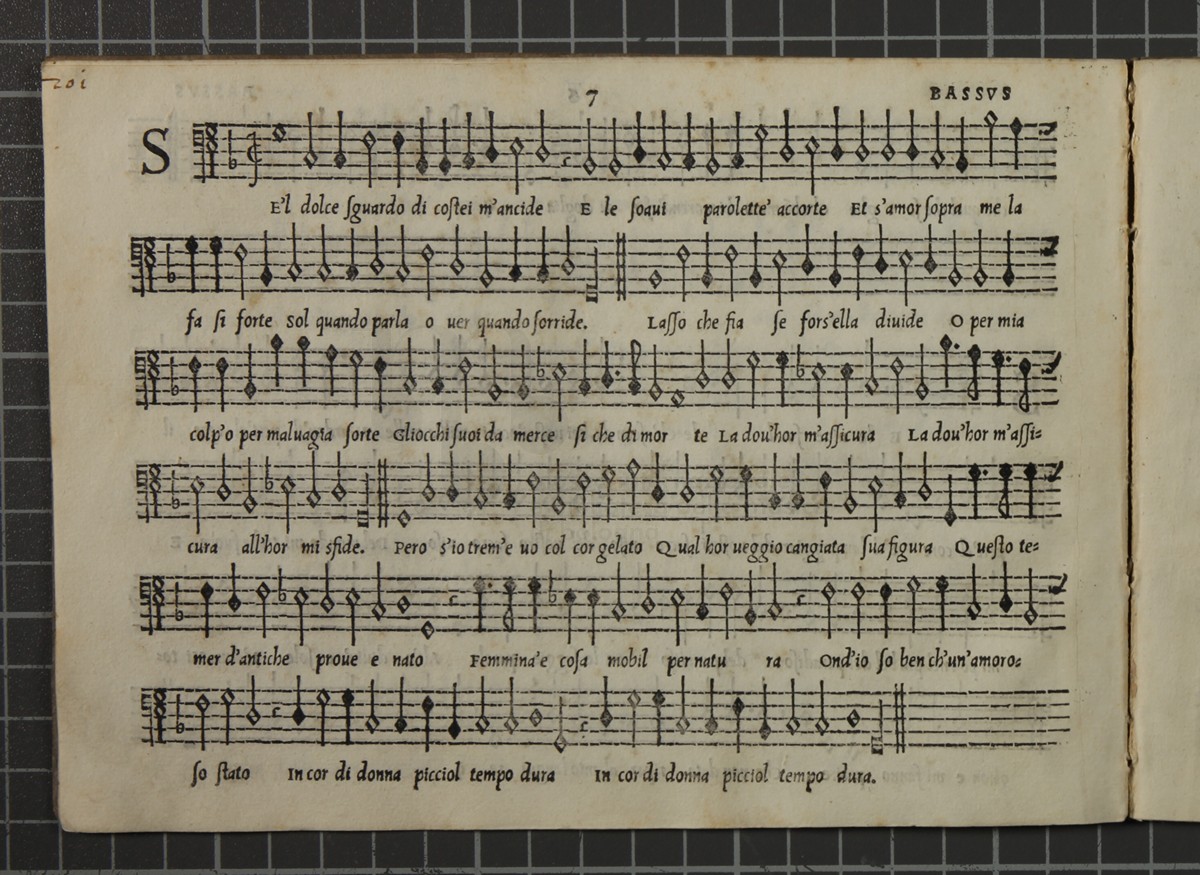 201
7
BASSVS
S
E'l dolce ſguardo di coſtei m'ancide E le ſoaui parolette' accorte Et s'amor ſopra me la
fa ſi forte Sol quando parla o uer quando ſorride. Laſſo che fia ſe forſ'ella diuide O per mia
colp'o per maluagia ſorte Gliocchi ſuoi da merce ſi che di mor te La dou'hor m'aſſicura La dou'hor m'aſſi=
cura all'hor mi sfide. Pero s'io trem'e uo col cor gelato Qual hor ueggio cangiata ſua figura Queſto te=
mer d'antiche proue e nato Femmina'e coſa mobil per natu ra Ond'io ſo ben ch'un'amoro=
ſo ſtato In cor di donna picciol tempo dura In cor di donna picciol tempo dura.